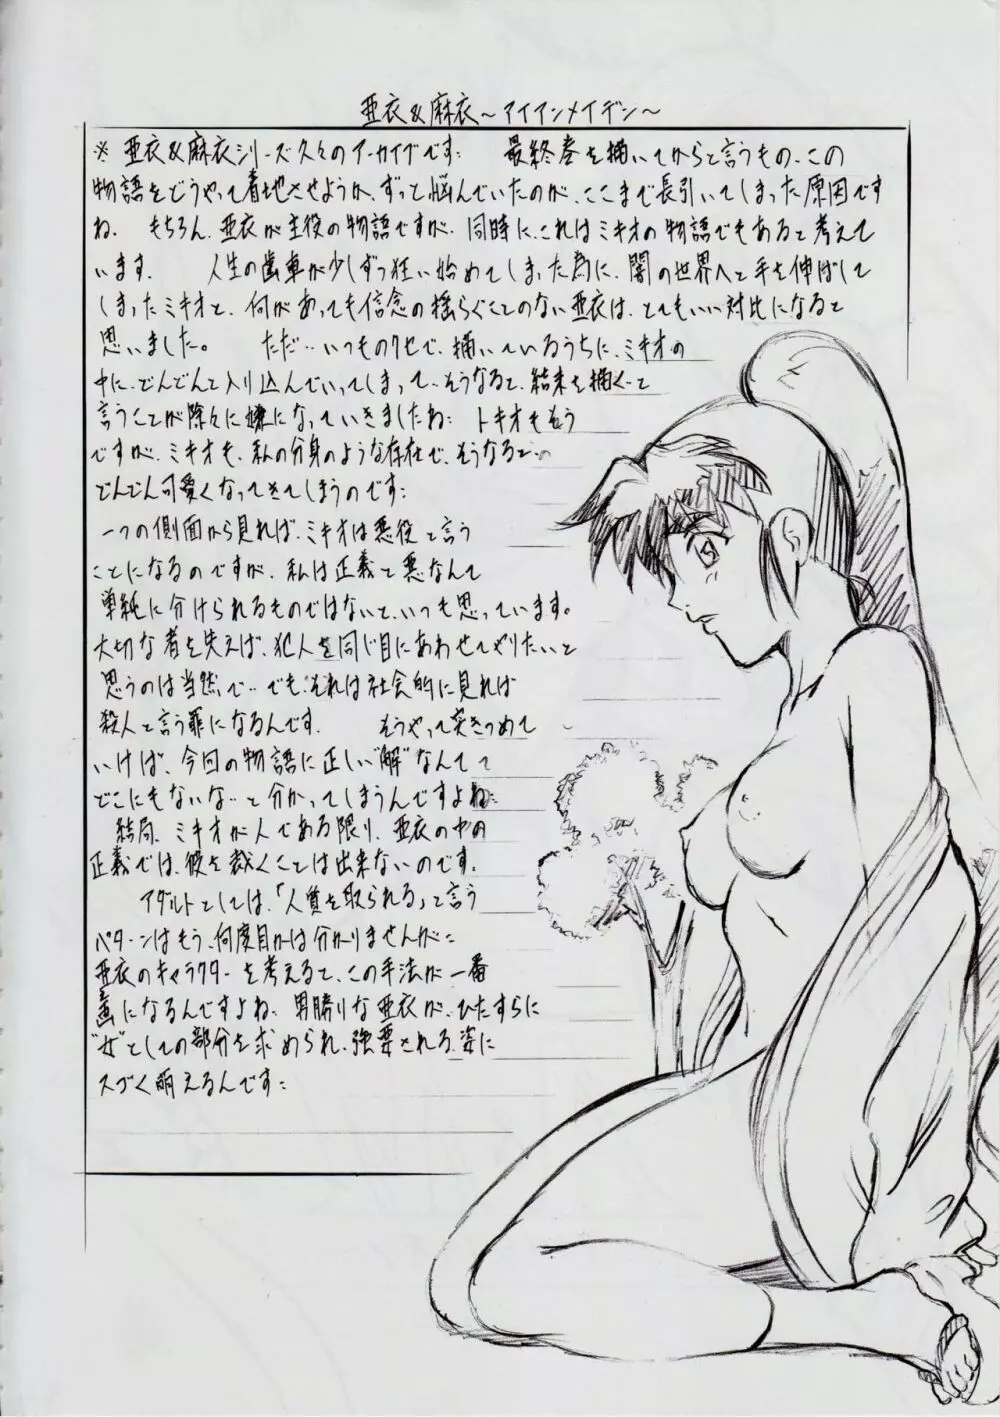 亜衣&麻衣～アイアンメイデン～
※ 亜衣&麻衣シリーズ久々のアーカイブです: 最終巻を描いてからと言うもの、この
物語をどうやって着地させようか、ずっと悩んでいたのが、ここまで長引いてしまった原因です
ね. もちろん、亜衣が主役の物語ですが、同時に、これはミキオの物語でもあると考えて
います. 人生の歯車が少しずつ狂い始めてしまった為に、闇の世界へと手を伸ばして
しまったミキオと、何があっても信念の揺らぐことのない亜衣は、とてもいい対比になると
思いました。 ただ…いつものクセで、描いているうちに、ミキオの
中に、どんどんと入り込んでいってしまって…そうなると、結末を描くと
言うことが除々に嫌になっていきましたね: トキオもそう
ですが、ミキオも、私の分身のような存在で、そうなると…
どんどん可愛くなってきてしまうのです:
一つの側面から見れば、ミキオは悪役と言う
ことになるのですが、私は正義と悪なんて
単純に分けられるものではないと、いつも思っています。
大切な者を失えば、犯人を同じ目にあわせてやりたいと
思うのは当然で…でも、それは社会的に見れば
殺人と言う罪になるんです. そうやって突きつめて
いけば、今回の物語に正しい"解"なんてて
どこにもないな…と分かってしまうんですよね:
結局、ミキオが人である限り、亜衣の中の
正義では、彼を裁くことは出来ないのです。
アダルトとしては、「人質を取られる」と言う
パターンはもう、何度目かは分かりませんが:
亜衣のキャラクターを考えると、この手法が一番
画になるんですよね. 男勝りな亜衣が、ひたすらに
"女"としての部分を求められ、強要される姿に
スゴく萌えるんです: